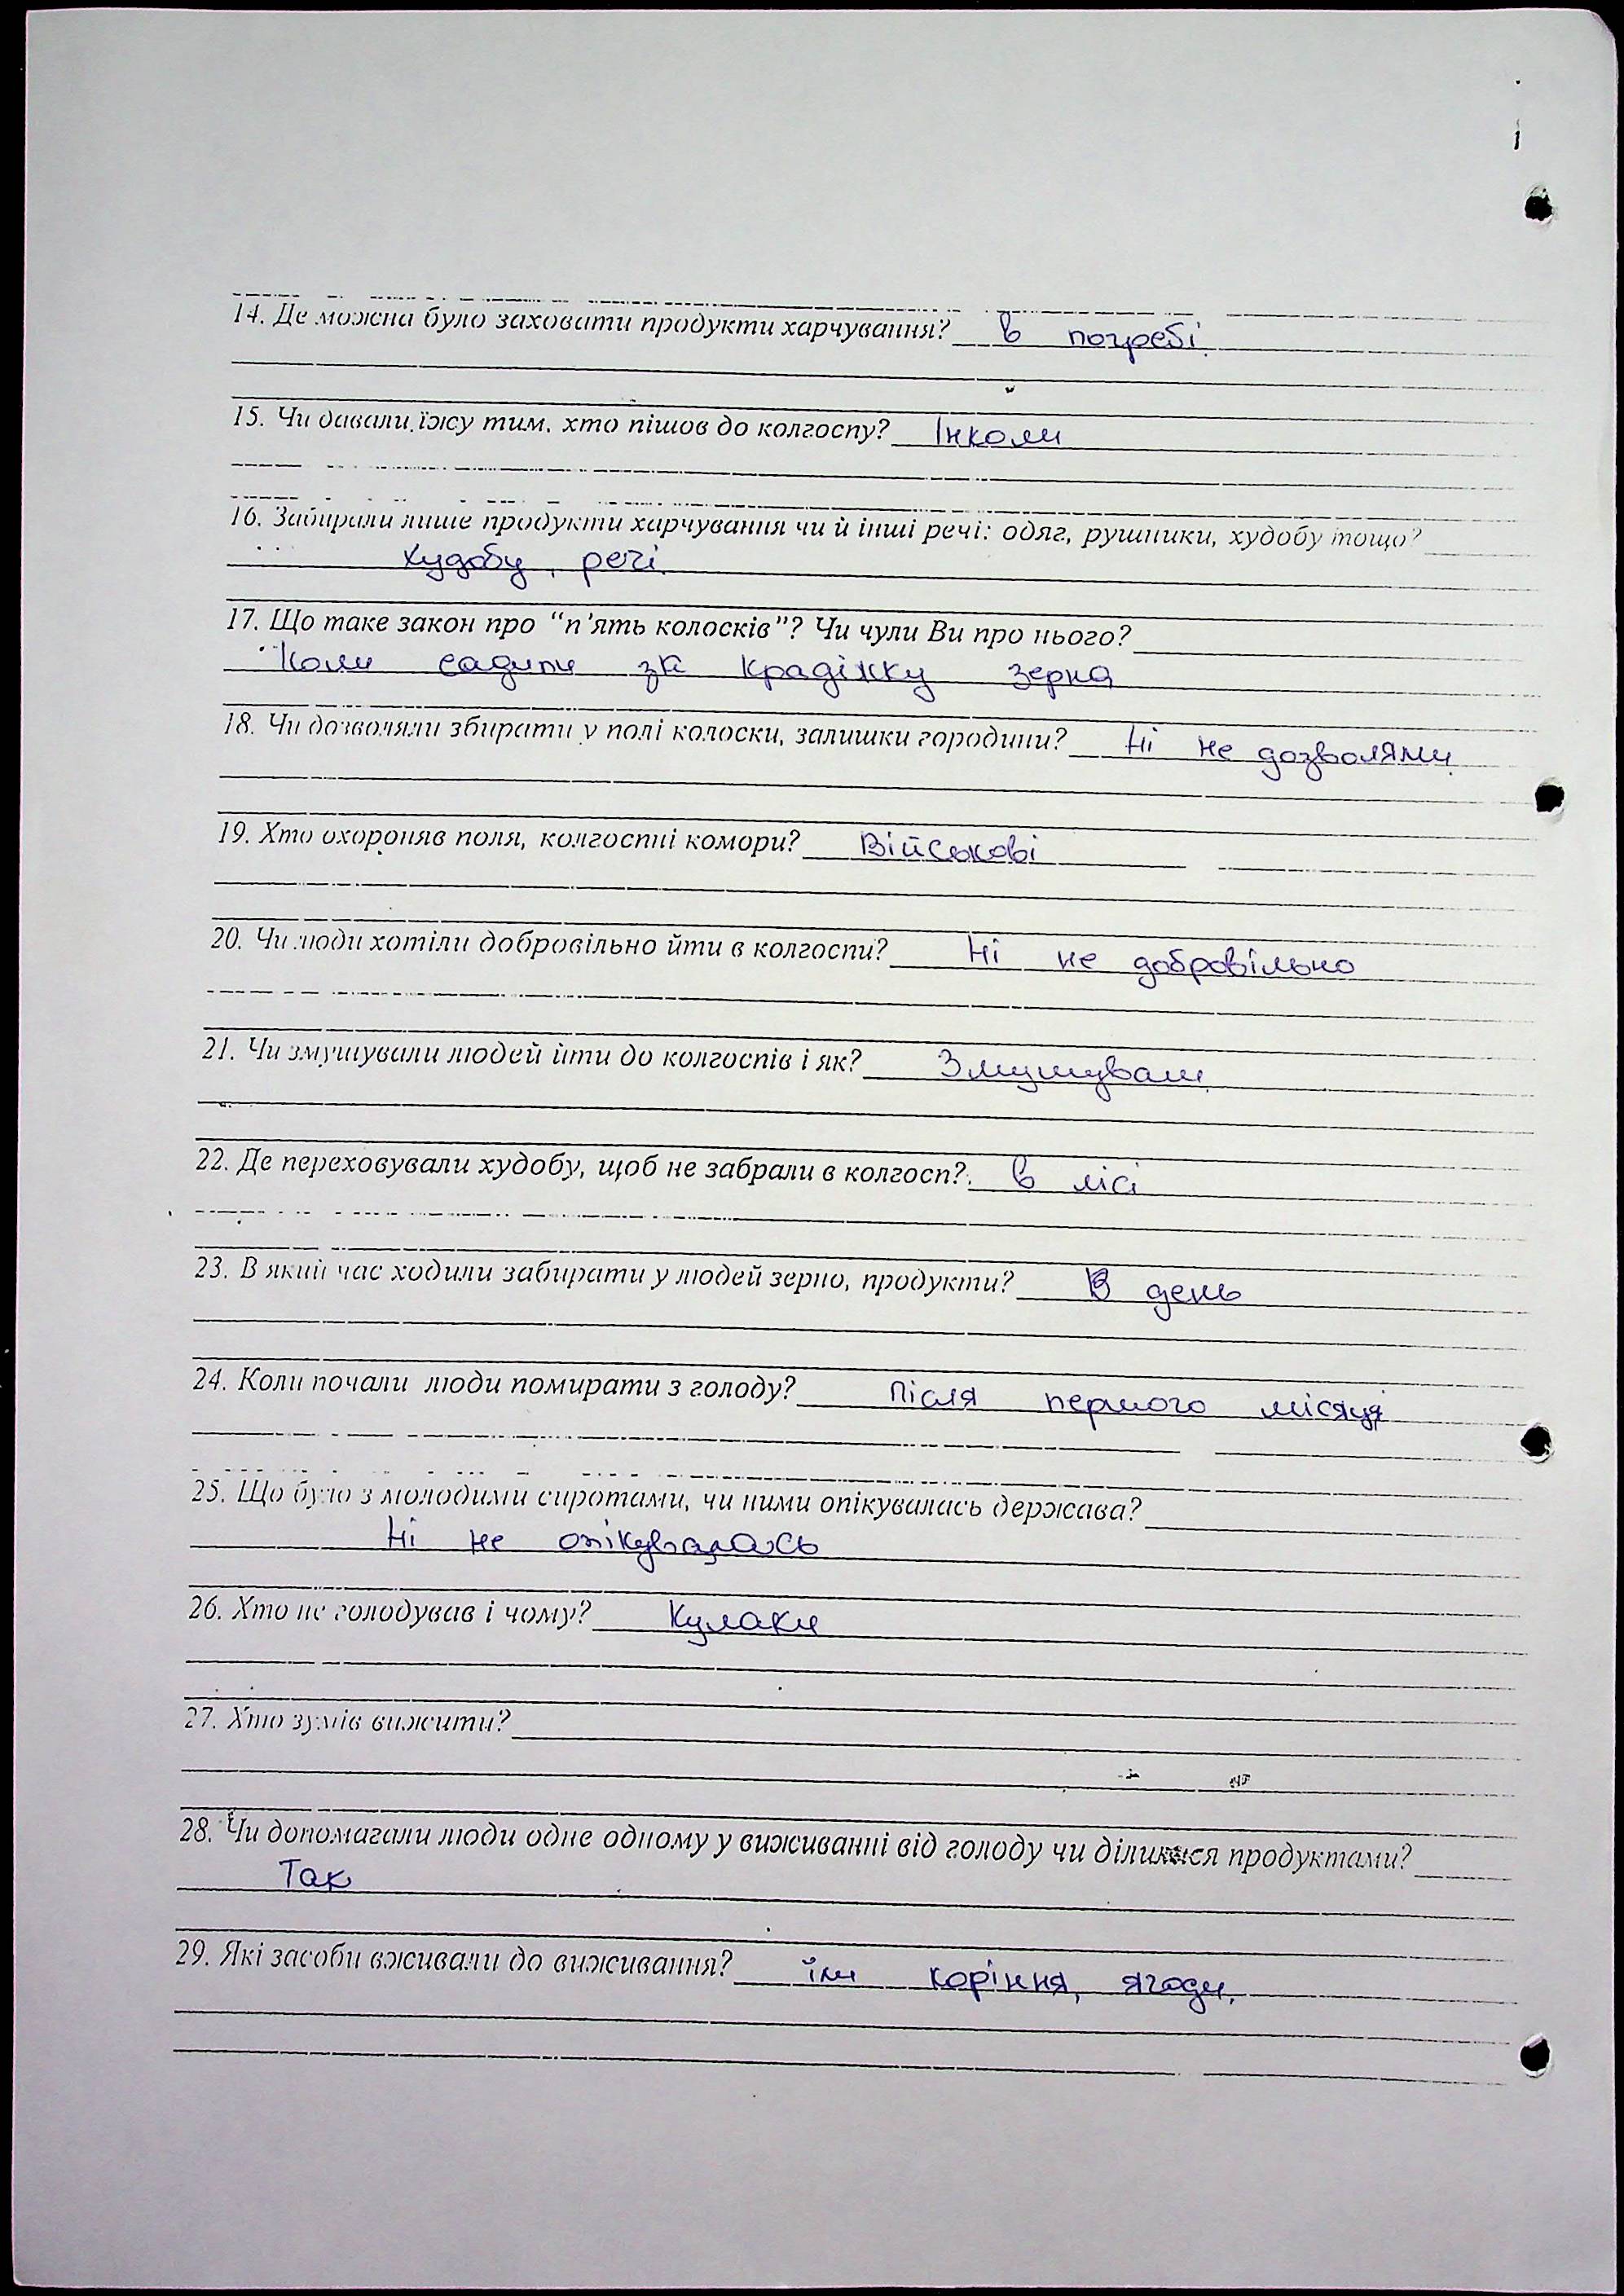 14. Де можна було заховати продукти харчування? в погребі.
15. Чи давали їжу тим, хто пішов до колгоспу? Інколи
16. Забирали лише продукти харчування чи й інші речі: одяг, рушники, худобу тощо?
худобу, речі.
17. Що таке закон про "п'ять колосків"? Чи чули Ви про нього?
Коли садили за крадіжку зерна
18. Чи дозволяли збирати у полі колоски, залишки городини? Ні не дозволяли.
19. Хто охороняв поля, колгоспні комори? Військові
20. Чи люди хотіли добровільно йти в колгоспи? Ні не добровільно
21. Чи змушували людей йти до колгоспів і як? Змушували.
22. Де переховували худобу, щоб не забрали в колгосп? в лісі
23. В який час ходили забирати у людей зерно, продукти? В день
24. Коли почали люди помирати з голоду? Після першого місяця
25. Що було з молодими сиротами, чи ними опікувалась держава?
Ні не опікувалась
26. Хто не голодував і чому? Кулаки
27. Хто зумів вижити?
28. Чи допомагали люди одне одному у виживанні від голоду чи ділилися продуктами?
Так
29. Які засоби вживали до виживання? їли коріння, ягоди.